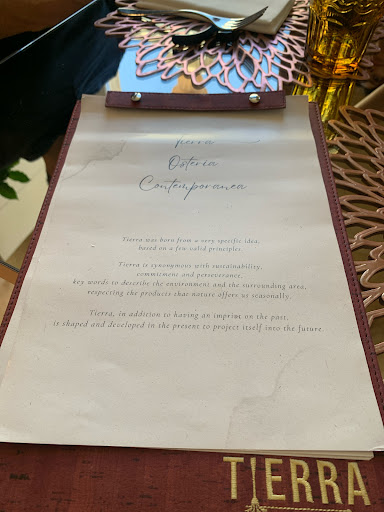 Tierra
Osteria
Contemporanea
Tierra was born from a very specific idea,
based on a few valid principles.
Tierra is synonymous with sustainability,
commitment and perseverance,
key words to describe the environment and the surrounding area,
respecting the products that nature offers us seasonally.
Tierra, in addition to having an imprint on the past,
is shaped and developed in the present to project itself into the future.
TIERRA